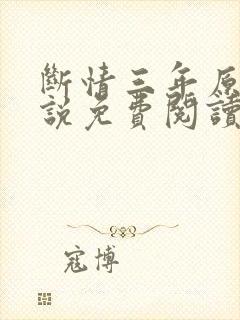 斷情三年原
說免費閱讀
寇博